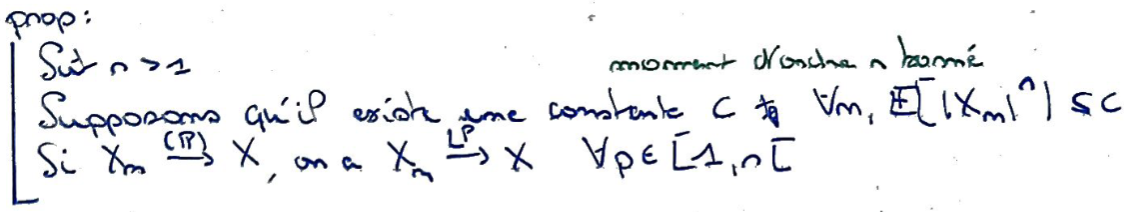 prop:
Soit r > 1
moment d'ordre r borné
Supposons qu'il existe une constante C tq ∀n, E[|X_n|^r] ≤ C
Si X_n →^(P) X, on a X_n →^{L^p} X ∀p ∈ [1, r[